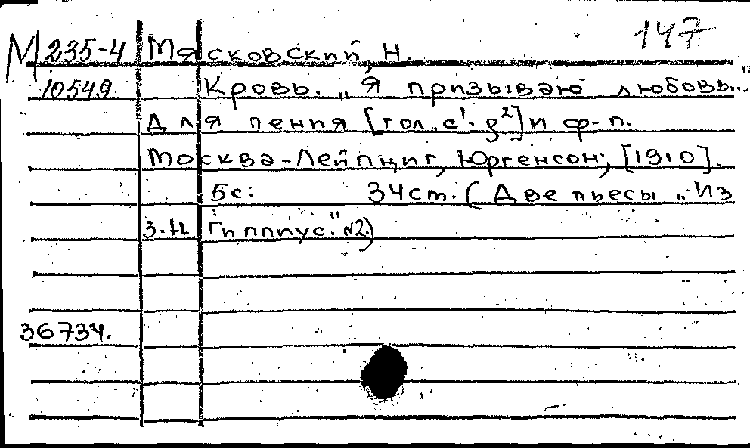 147
М 235-4 Мясковский, Н.
10549 Кровь. „Я призываю любовь..."
для пения [гол. c¹-g²] и ф-п.
Москва-Лейпциг, Юргенсон, [1910].
5с. 34см. (Две пьесы „Из
З.Н. Гиппиус." №2)
36734.